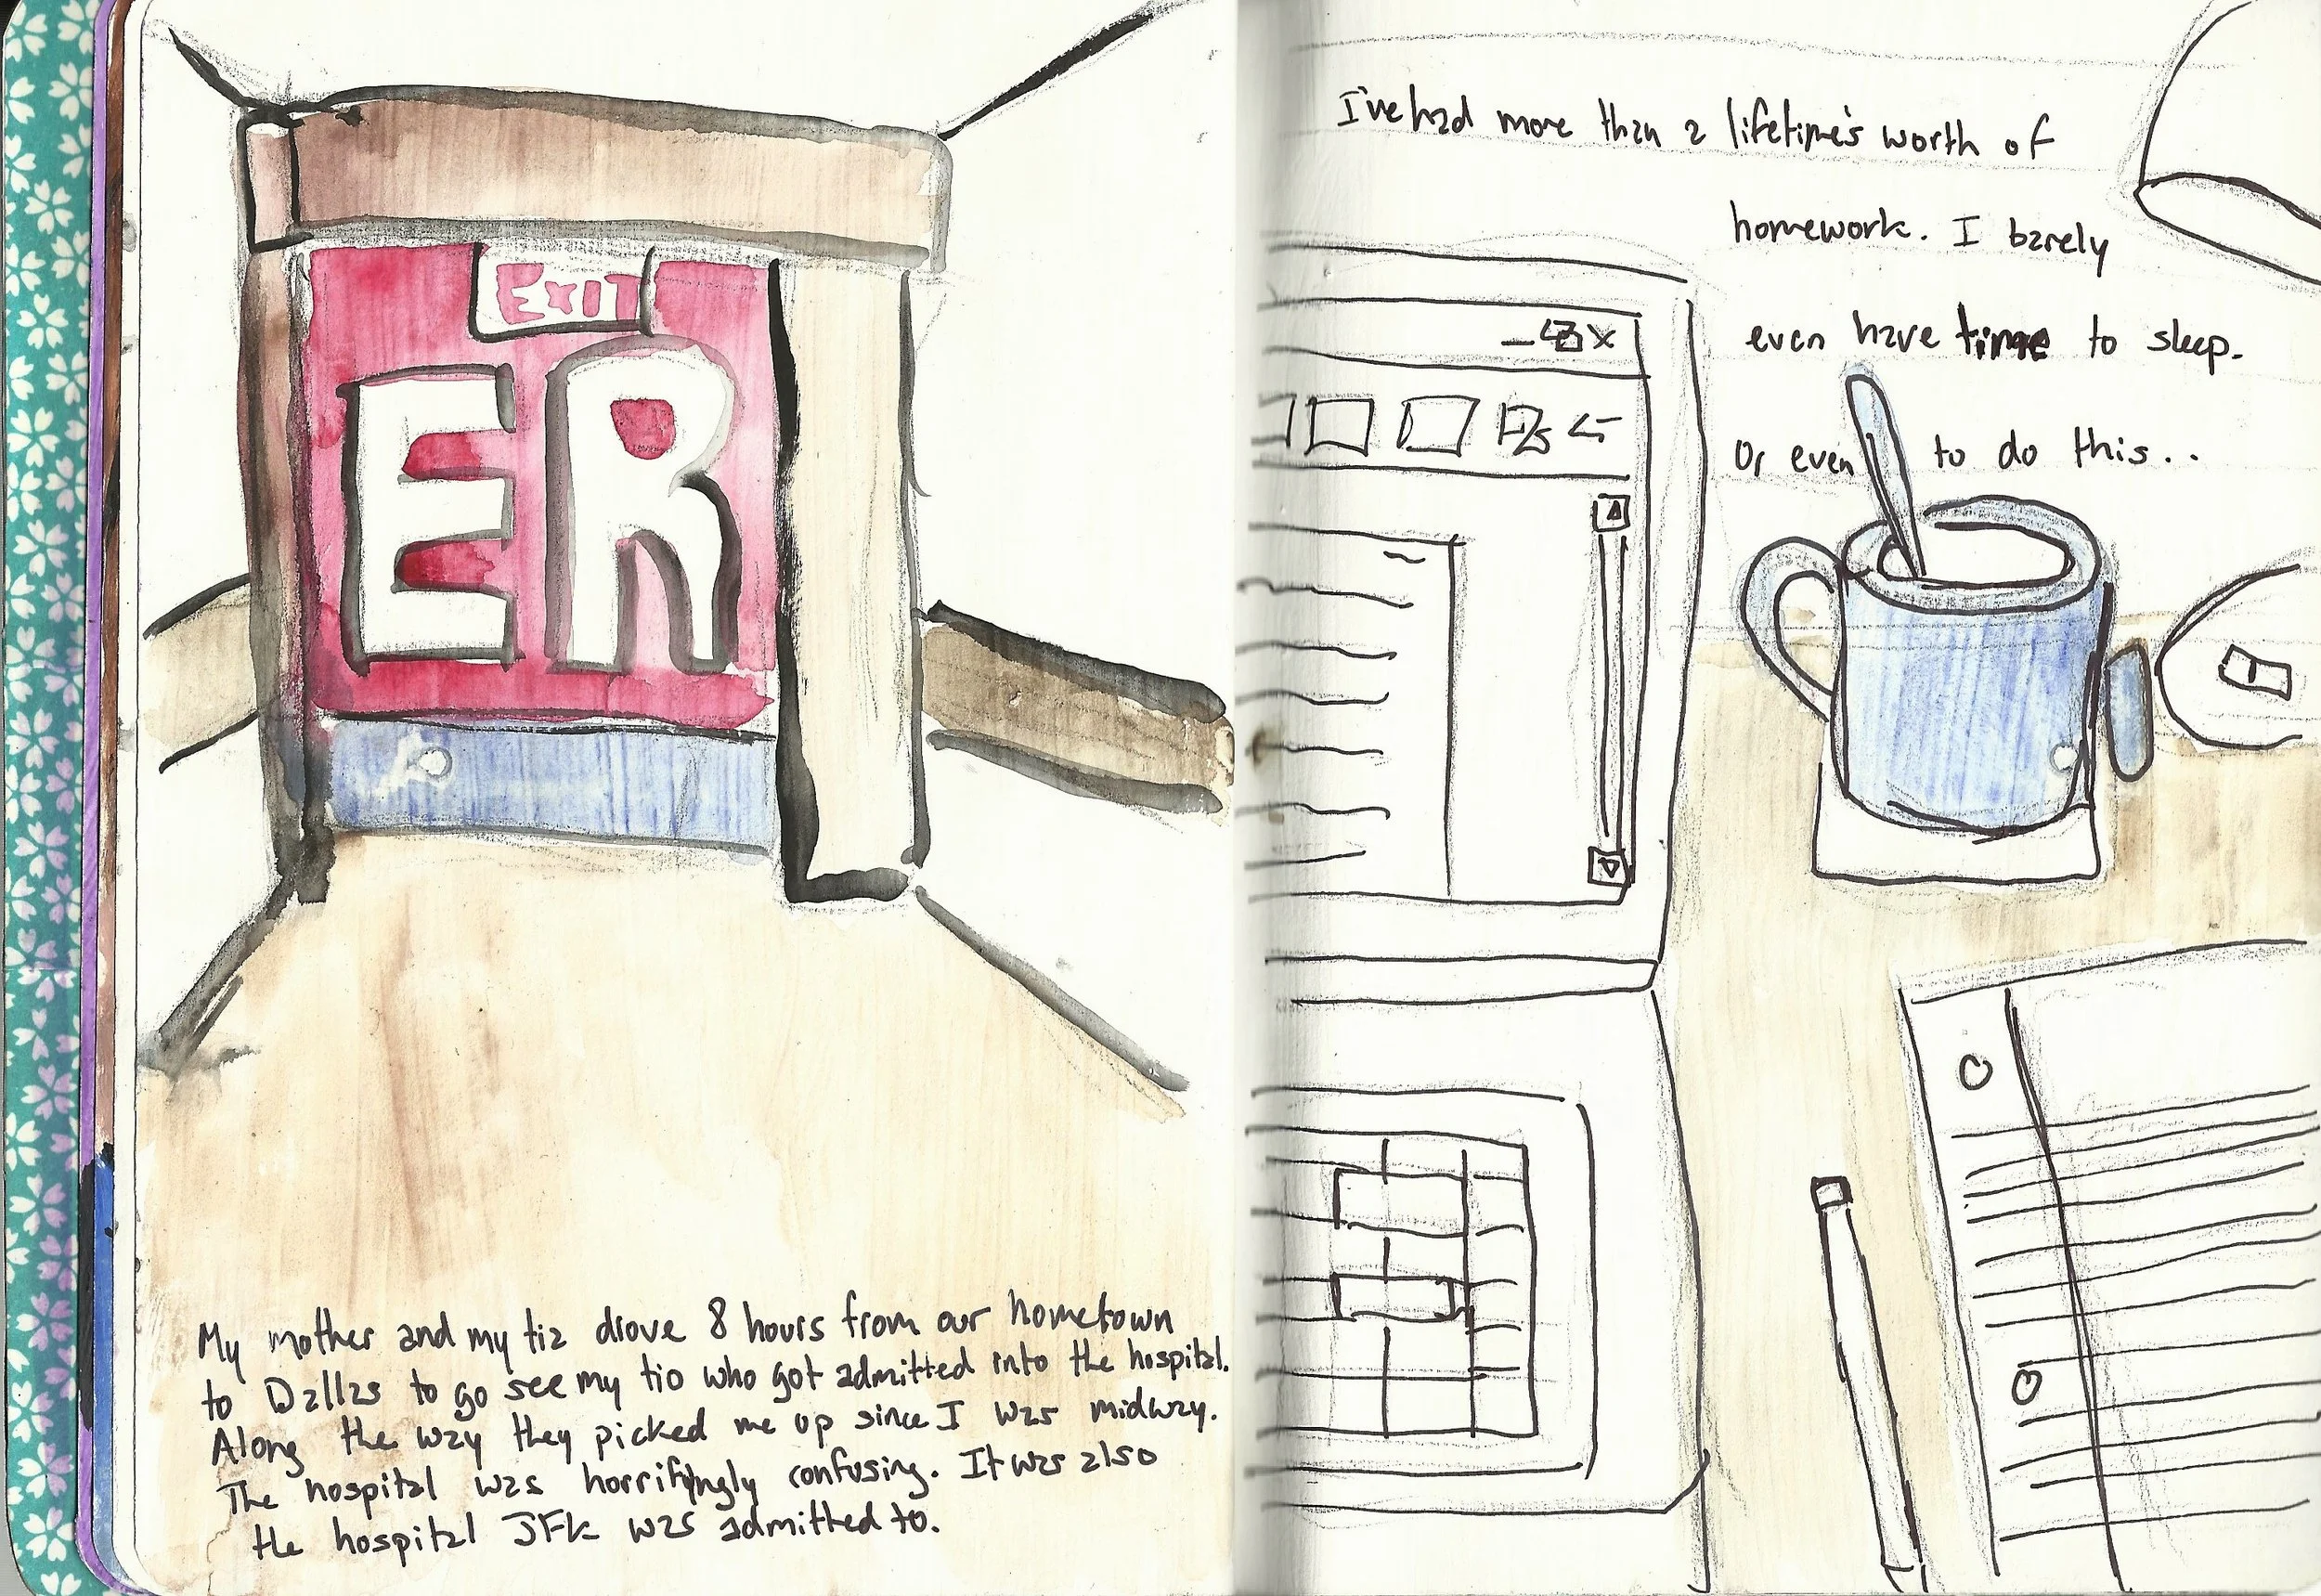 EXIT
ER
My mother and my tia drove 8 hours from our hometown
to Dallas to go see my tio who got admitted into the hospital.
Along the way they picked me up since I was midway.
The hospital was horrifyingly confusing. It was also
the hospital JFK was admitted to.
I've had more than a lifetime's worth of
homework. I barely
even have time to sleep.
Or even to do this..